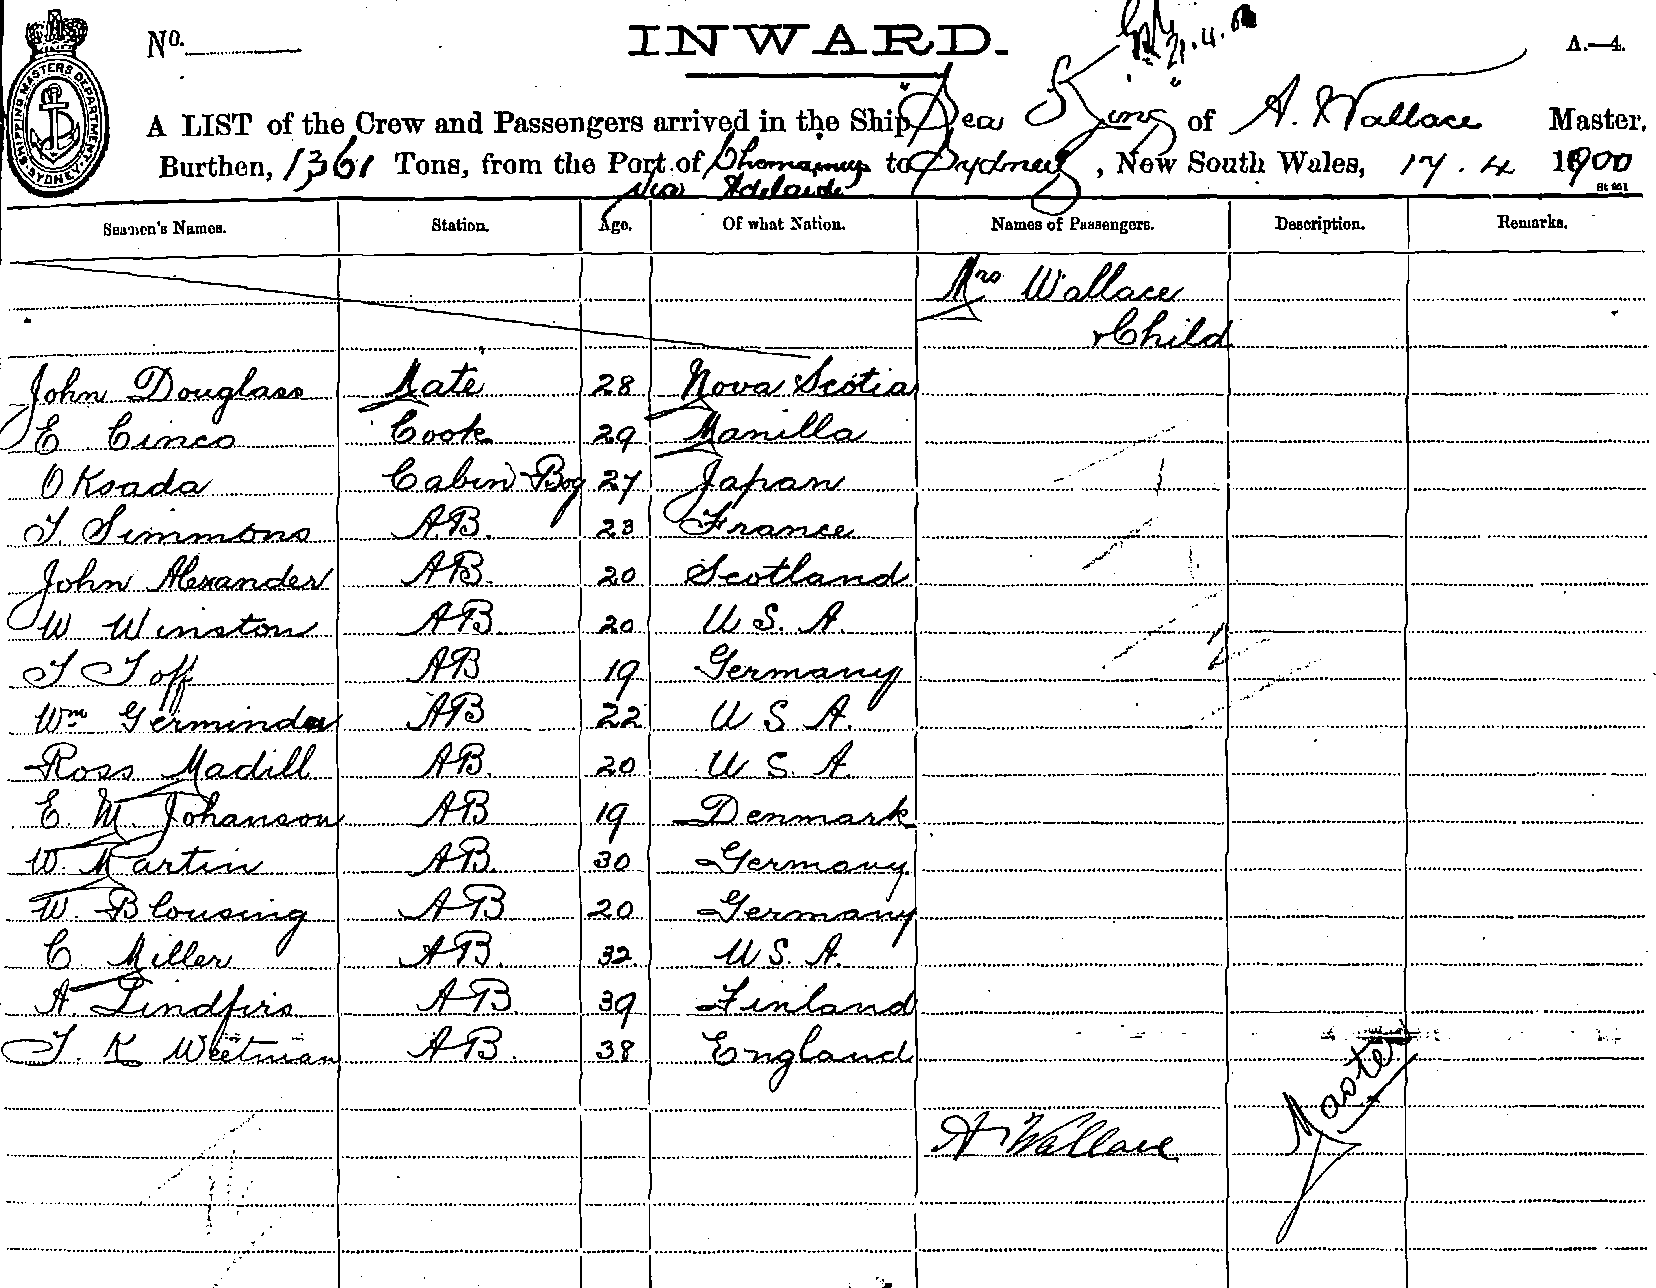 No.
INWARD.
21.4.00
A.—4.
SHIPPING MASTERS DEPARTMENT. SYDNEY.
A LIST of the Crew and Passengers arrived in the Ship "Sea King" of A. Wallace Master,
Burthen, 1361 Tons, from the Port of Chemainus to Sydney, New South Wales, 17.4 1900
via Adelaide
Seamen's Names. Station. Age. Of what Nation. Names of Passengers. Description. Remarks.
Mrs Wallace
+ Child
John Douglass Mate 28 Nova Scotia
E Cinco Cook 29 Manilla
O Ksada Cabin Boy 27 Japan
T. Simmons A.B. 23 France
John Alexander AB. 20 Scotland
W Winston AB. 20 U S. A.
T Toff AB 19 Germany
Wm Germinder AB 22 U S A.
Ross Madill AB. 20 U S. A.
E. M. Johanson AB 19 Denmark
W. Martin AB. 30 Germany
W. Blousing AB 20 Germany
C Miller AB. 32 U S. A.
A. Lindfirs AB 39 Finland
T. K Weetman AB. 38 England
A Wallace
Master